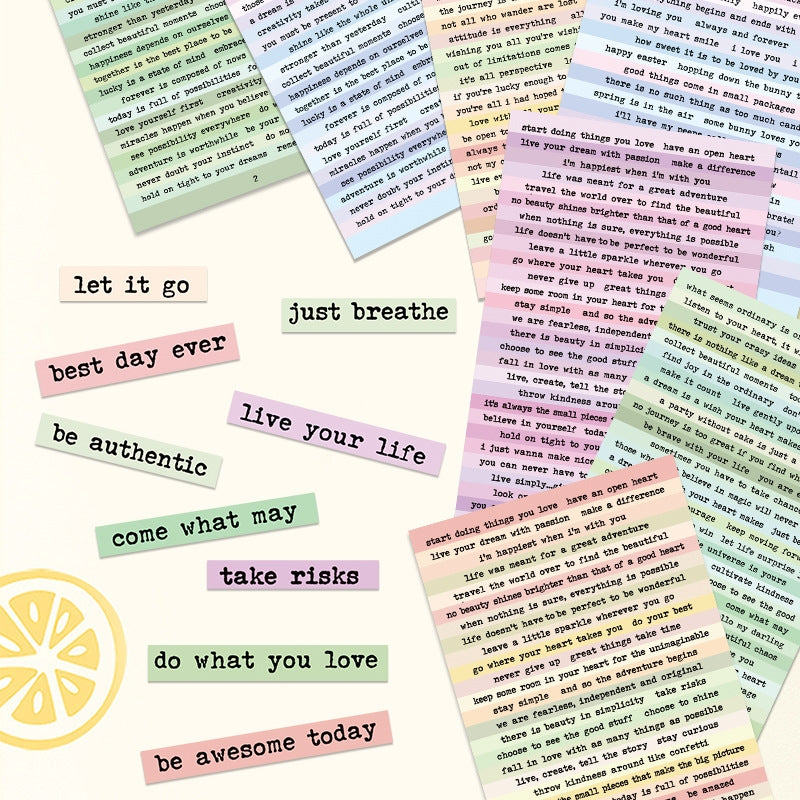 you must
shine like
stronger than yesterday
collect beautiful moments
happiness depends on ourselves
together is the best place to be
lucky is a state of mind
forever is composed of nows
today is full of possibilities
love yourself first creativity
miracles happen when you believe
see possibility everywhere
adventure is worthwhile be your
never doubt your instinct
hold on tight to your dreams
2
a dream is
creativity takes
you must be present to
shine like the whole
stronger than yesterday
collect beautiful moments choose
happiness depends on ourselves
together is the best place to be
lucky is a state of mind
forever is composed of
today is full of possibilities
love yourself first
miracles happen when you
see possibility everywhere
adventure is worthwhile
never doubt your instinct
hold on tight to your
the journey is
not all who wander are lost
attitude is everything
wishing you all you're
out of limitations comes
it's all perspective
if you're lucky enough to
you're all i had hoped
love
be open to
always
not my
live
everything begins and ends with
i'm loving you always and forever
you make my heart smile i love you
how sweet it is to be loved by you
happy easter hopping down the bunny
good things come in small packages
there is no such thing as too much
spring is in the air some bunny loves you
i'll have my peeps
start doing things you love have an open heart
live your dream with passion make a difference
i'm happiest when i'm with you
life was meant for a great adventure
travel the world over to find the beautiful
no beauty shines brighter than that of a good heart
when nothing is sure, everything is possible
life doesn't have to be perfect to be wonderful
leave a little sparkle wherever you go
go where your heart takes you
never give up great things
keep some room in your heart for
stay simple and so the
we are fearless, independent
there is beauty in simplicity
choose to see the good stuff
fall in love with as many
live, create, tell the
throw kindness
it's always the small pieces
believe in yourself
hold on tight to
i just wanna make
you can never have
live simply
look
what seems ordinary is
listen to your heart, it
trust your crazy ideas
there is nothing like a dream
collect beautiful moments
find joy in the ordinary
make it count live gently
a dream is a wish your heart makes
a party without cake is just a
no journey is too great if you find
be brave with your life you are
sometimes you have to take
those who believe in magic will never
your heart makes just
courage keep moving
win let life surprise
universe is yours
cultivate kindness
choose to see the good
come what may
my darling
beautiful chaos
let it go
just breathe
best day ever
live your life
be authentic
come what may
take risks
do what you love
be awesome today
start doing things you love have an open heart
live your dream with passion make a difference
i'm happiest when i'm with you
life was meant for a great adventure
travel the world over to find the beautiful
no beauty shines brighter than that of a good heart
when nothing is sure, everything is possible
life doesn't have to be perfect to be wonderful
leave a little sparkle wherever you go
go where your heart takes you do your best
never give up great things take time
keep some room in your heart for the unimaginable
stay simple and so the adventure begins
we are fearless, independent and original
there is beauty in simplicity take risks
choose to see the good stuff choose to shine
fall in love with as many things as possible
live, create, tell the story stay curious
throw kindness around like confetti
the small pieces that make the big picture
today is full of possiblities
be amazed
happen